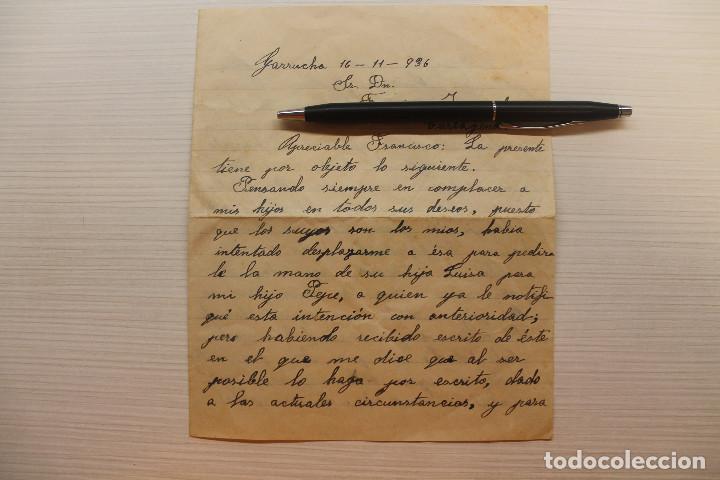 Garrucha 16-11-936
Sr. Dn.
Cartagena
Apreciable Francisco: La presente
tiene por objeto lo siguiente.
Pensando siempre en complacer a
mis hijos en todos sus deseos, puesto
que los suyos son los mios, habia
intentado desplazarme a ésa para pedirse
le la mano de su hija Luisa para
mi hijo Pepe, a quien ya le notifi
qué esta intención con anterioridad;
pero habiendo recibido escrito de éste
en el que me dice que al ser
posible lo haga por escrito, dado
a las actuales circunstancias, y para
todocoleccion.net